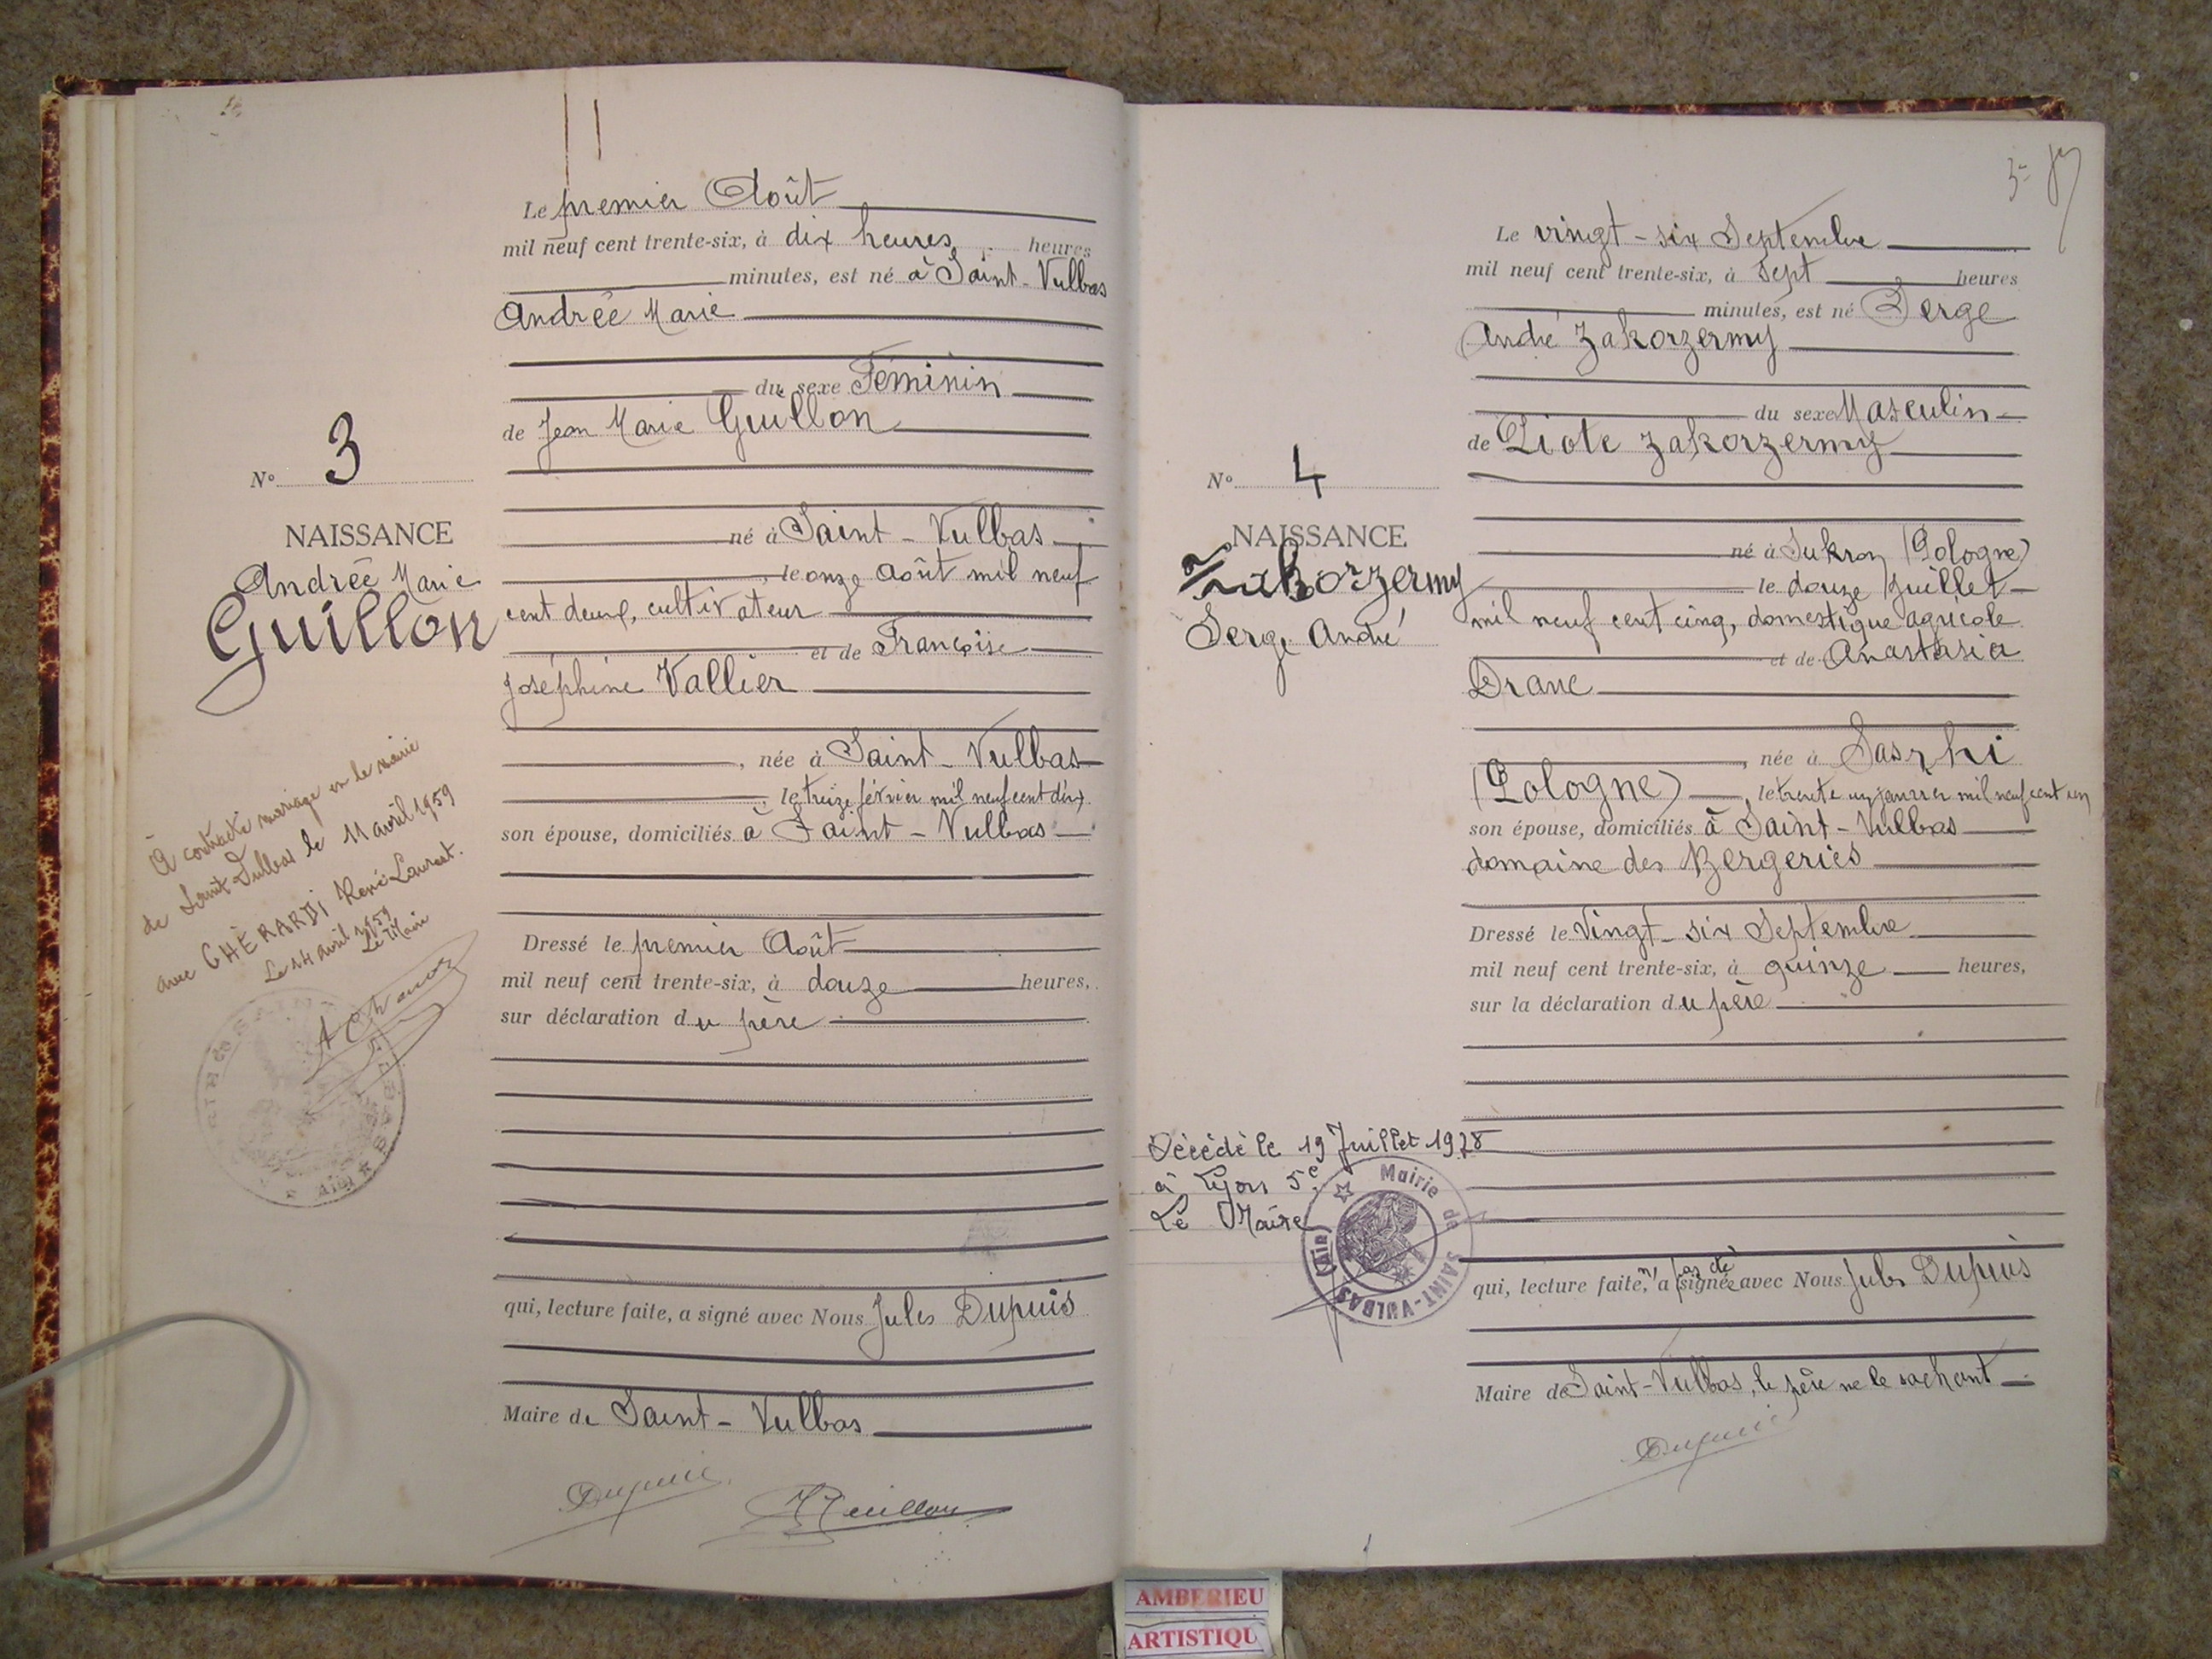 Le premier Août
mil neuf cent trente-six, à dix heures heures
minutes, est né à Saint-Vulbas
Andrée Marie
du sexe Féminin
de Jean Marie Guillon
N° 3
NAISSANCE
Andrée Marie
Guillon
né à Saint-Vulbas
, le onze Août mil neuf
cent deux, cultivateur
et de Françoise
Joséphine Vallier
, née à Saint-Vulbas
, le treize février mil neuf cent dix
son épouse, domiciliés à Saint-Vulbas
A contracté mariage en la mairie
de Saint Vulbas le 11 avril 1959
avec GHÉRARDI René Laurent.
Le 14 avril 1959
Le Maire
Dressé le premier Août
mil neuf cent trente-six, à douze heures,
sur déclaration du père
qui, lecture faite, a signé avec Nous Jules Dupuis
Maire de Saint-Vulbas
Dupuis
Guillon
Le vingt-six Septembre
mil neuf cent trente-six, à sept heures
minutes, est né Serge
André Zakorzermy
du sexe Masculin
de Piote Zakorzermy
N° 4
NAISSANCE
Zakorzermy
Serge André
né à Sukron (Pologne)
le douze Juillet
mil neuf cent cinq, domestique agricole
et de Anastasia
Dranc
, née à Saszhi
(Pologne), le trente un janvier mil neuf cent un
son épouse, domiciliés à Saint-Vulbas
domaine des Bergeries
Dressé le Vingt-six Septembre
mil neuf cent trente-six, à quinze heures,
sur la déclaration du père
Décédé le 19 Juillet 1978
à Lyon 5e
Le Maire
Mairie de SAINT-VULBAS (Ain)
qui, lecture faite, n'a pas été signée avec Nous Jules Dupuis
Maire de Saint-Vulbas, le père ne le sachant
Dupuis
AMBERIEU
ARTISTIQU